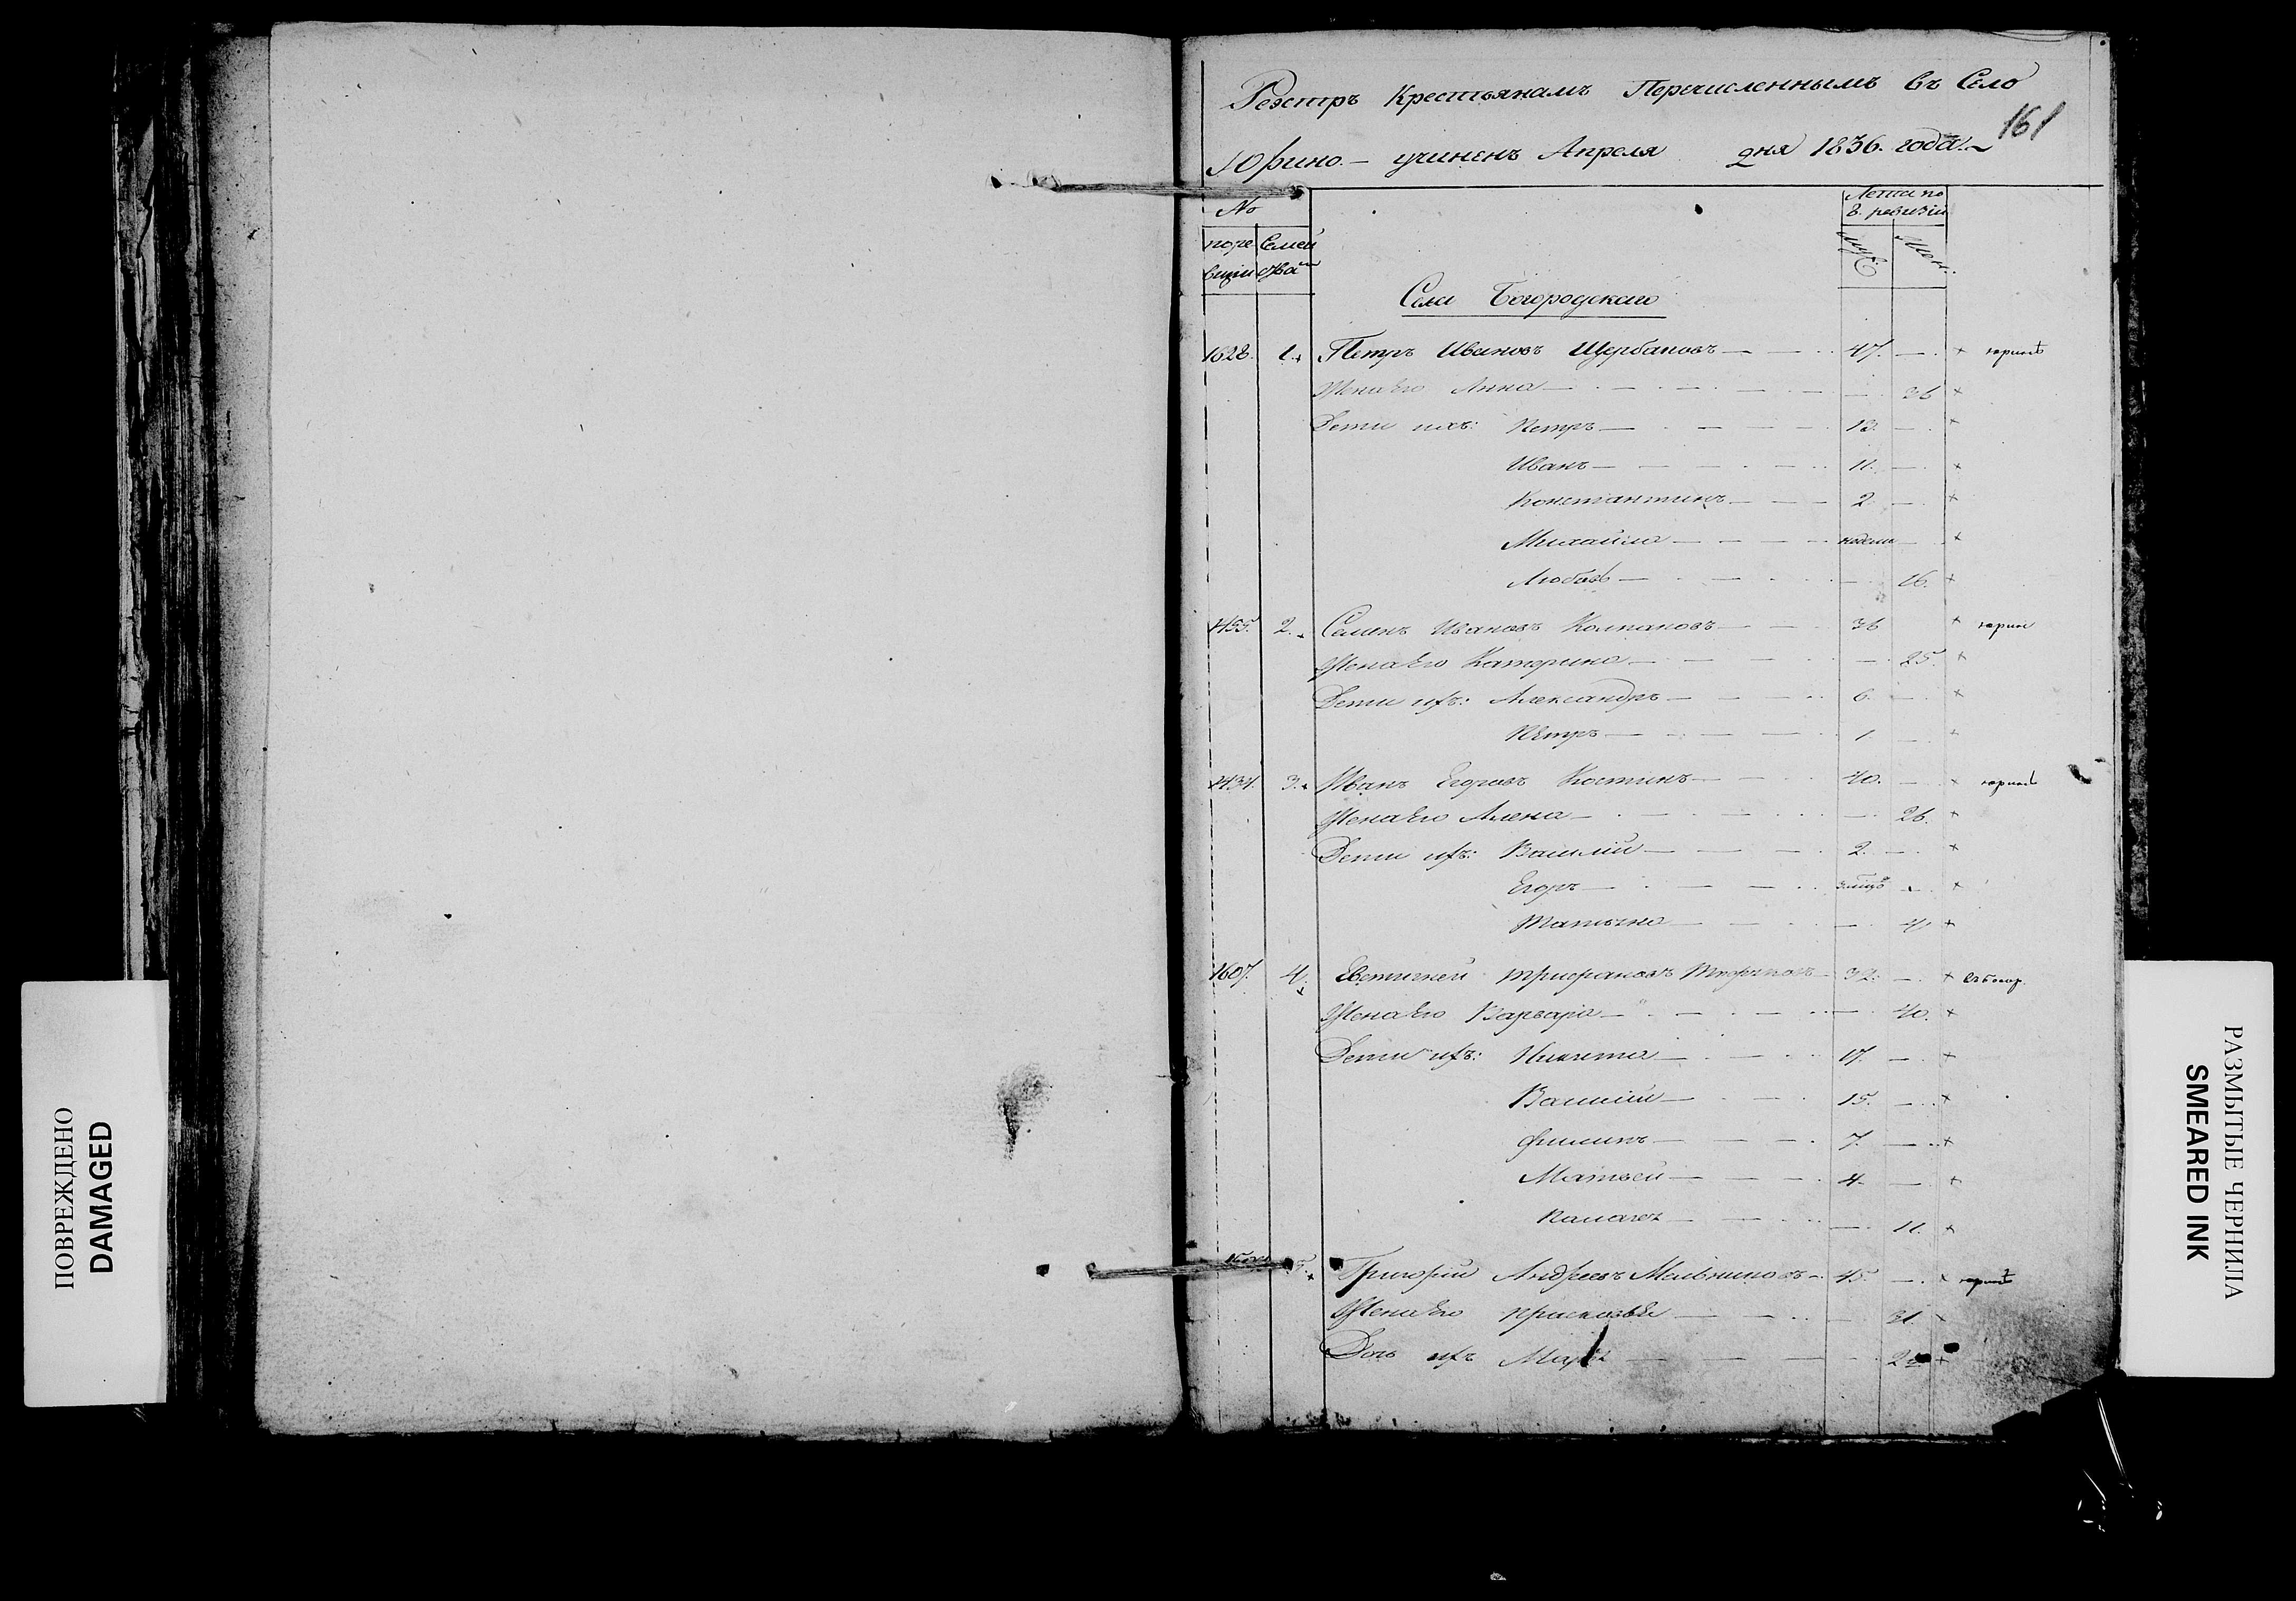 ПОВРЕЖДЕНО
DAMAGED
Реэстръ Крестьянамъ Перечисленнымъ въ Село
161
Юрино. — учиненъ Апреля дня 1836. года.
№
поре Семей
визіи ства
Лета по
8. ревизіи
муж. жен.
Села Богородскаго
1628. 1. Петръ Ивановъ Щербаковъ — 47. — × юринѣ
Жена Его Анна — 36 ×
Дети ихъ: Петръ — 13. — ×
Иванъ — 11. — ×
Константинъ — 2 — ×
Михайла — недели — ×
Любовь — 16. ×
455. 2. Семенъ Ивановъ Колпаковъ — 36 × юрин
Жена Его Катерина — 25. ×
Дети ихъ: Александръ — 6. — ×
Петръ — 1. — ×
3. Иванъ Егоровъ Костинъ — 40. — × юринѣ
Жена Его Алена — 26. ×
Дети ихъ: Василий — 2. — ×
Егоръ — ×
Татьяна — 4 ×
1607. 4. Евтигней Трифановъ — 32. — ×
Жена Его Варвара — 40. ×
Дети ихъ: Никита — 17. — ×
Василий — 15. — ×
Филипъ — 7. — ×
Матвей — 4. — ×
11. ×
5. Григорий Андреевъ Мельниковъ — 45. — × юринѣ
Жена Его Прасковья — 31. ×
Дочь ихъ ×
РАЗМЫТЫЕ ЧЕРНИЛА
SMEARED INK